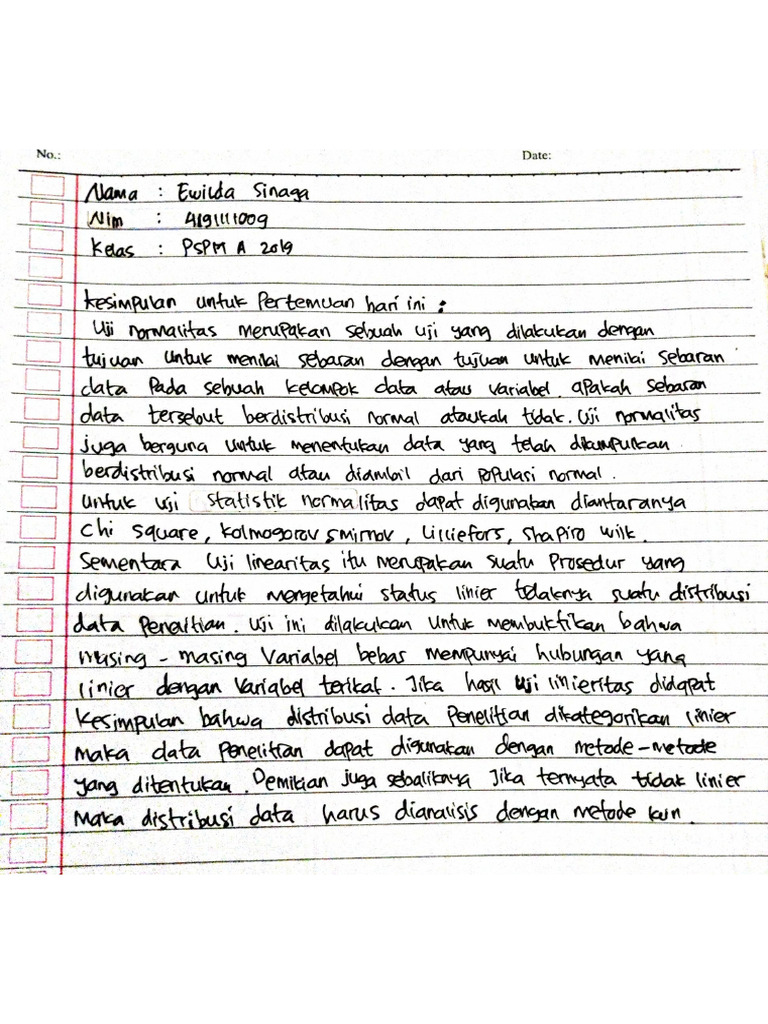 No.: Date:
Nama : Ewilda Sinaga
Nim : 4191111009
Kelas : PSPM A 2019
Kesimpulan untuk Pertemuan hari ini :
Uji normalitas merupakan sebuah uji yang dilakukan dengan
tujuan untuk menilai sebaran dengan tujuan untuk menilai Sebaran
data Pada sebuah kelompok data atau variabel. apakah sebaran
data tersebut berdistribusi normal ataukah tidak. Uji normalitas
juga berguna untuk menentukan data yang telah dikumpulkan
berdistribusi normal atau diambil dari populasi normal.
untuk uji statistik normalitas dapat digunakan diantaranya
Chi square, Kolmogorov smirnov, Lilliefors, Shapiro wilk.
Sementara Uji linearitas itu merupakan suatu Prosedur yang
digunakan untuk mengetahui status linier tidaknya suatu distribusi
data Penelitian. Uji ini dilakukan Untuk membuktikan bahwa
masing - masing Variabel bebas mempunyai hubungan yang
linier dengan Variabel terikat. Jika hasil uji linieritas didapat
Kesimpulan bahwa distribusi data Penelitian dikategorikan linier
maka data penelitian dapat digunakan dengan metode-metode
yang ditentukan. Demikian juga sebaliknya Jika ternyata tidak linier
Maka distribusi data harus dianalisis dengan metode lain.